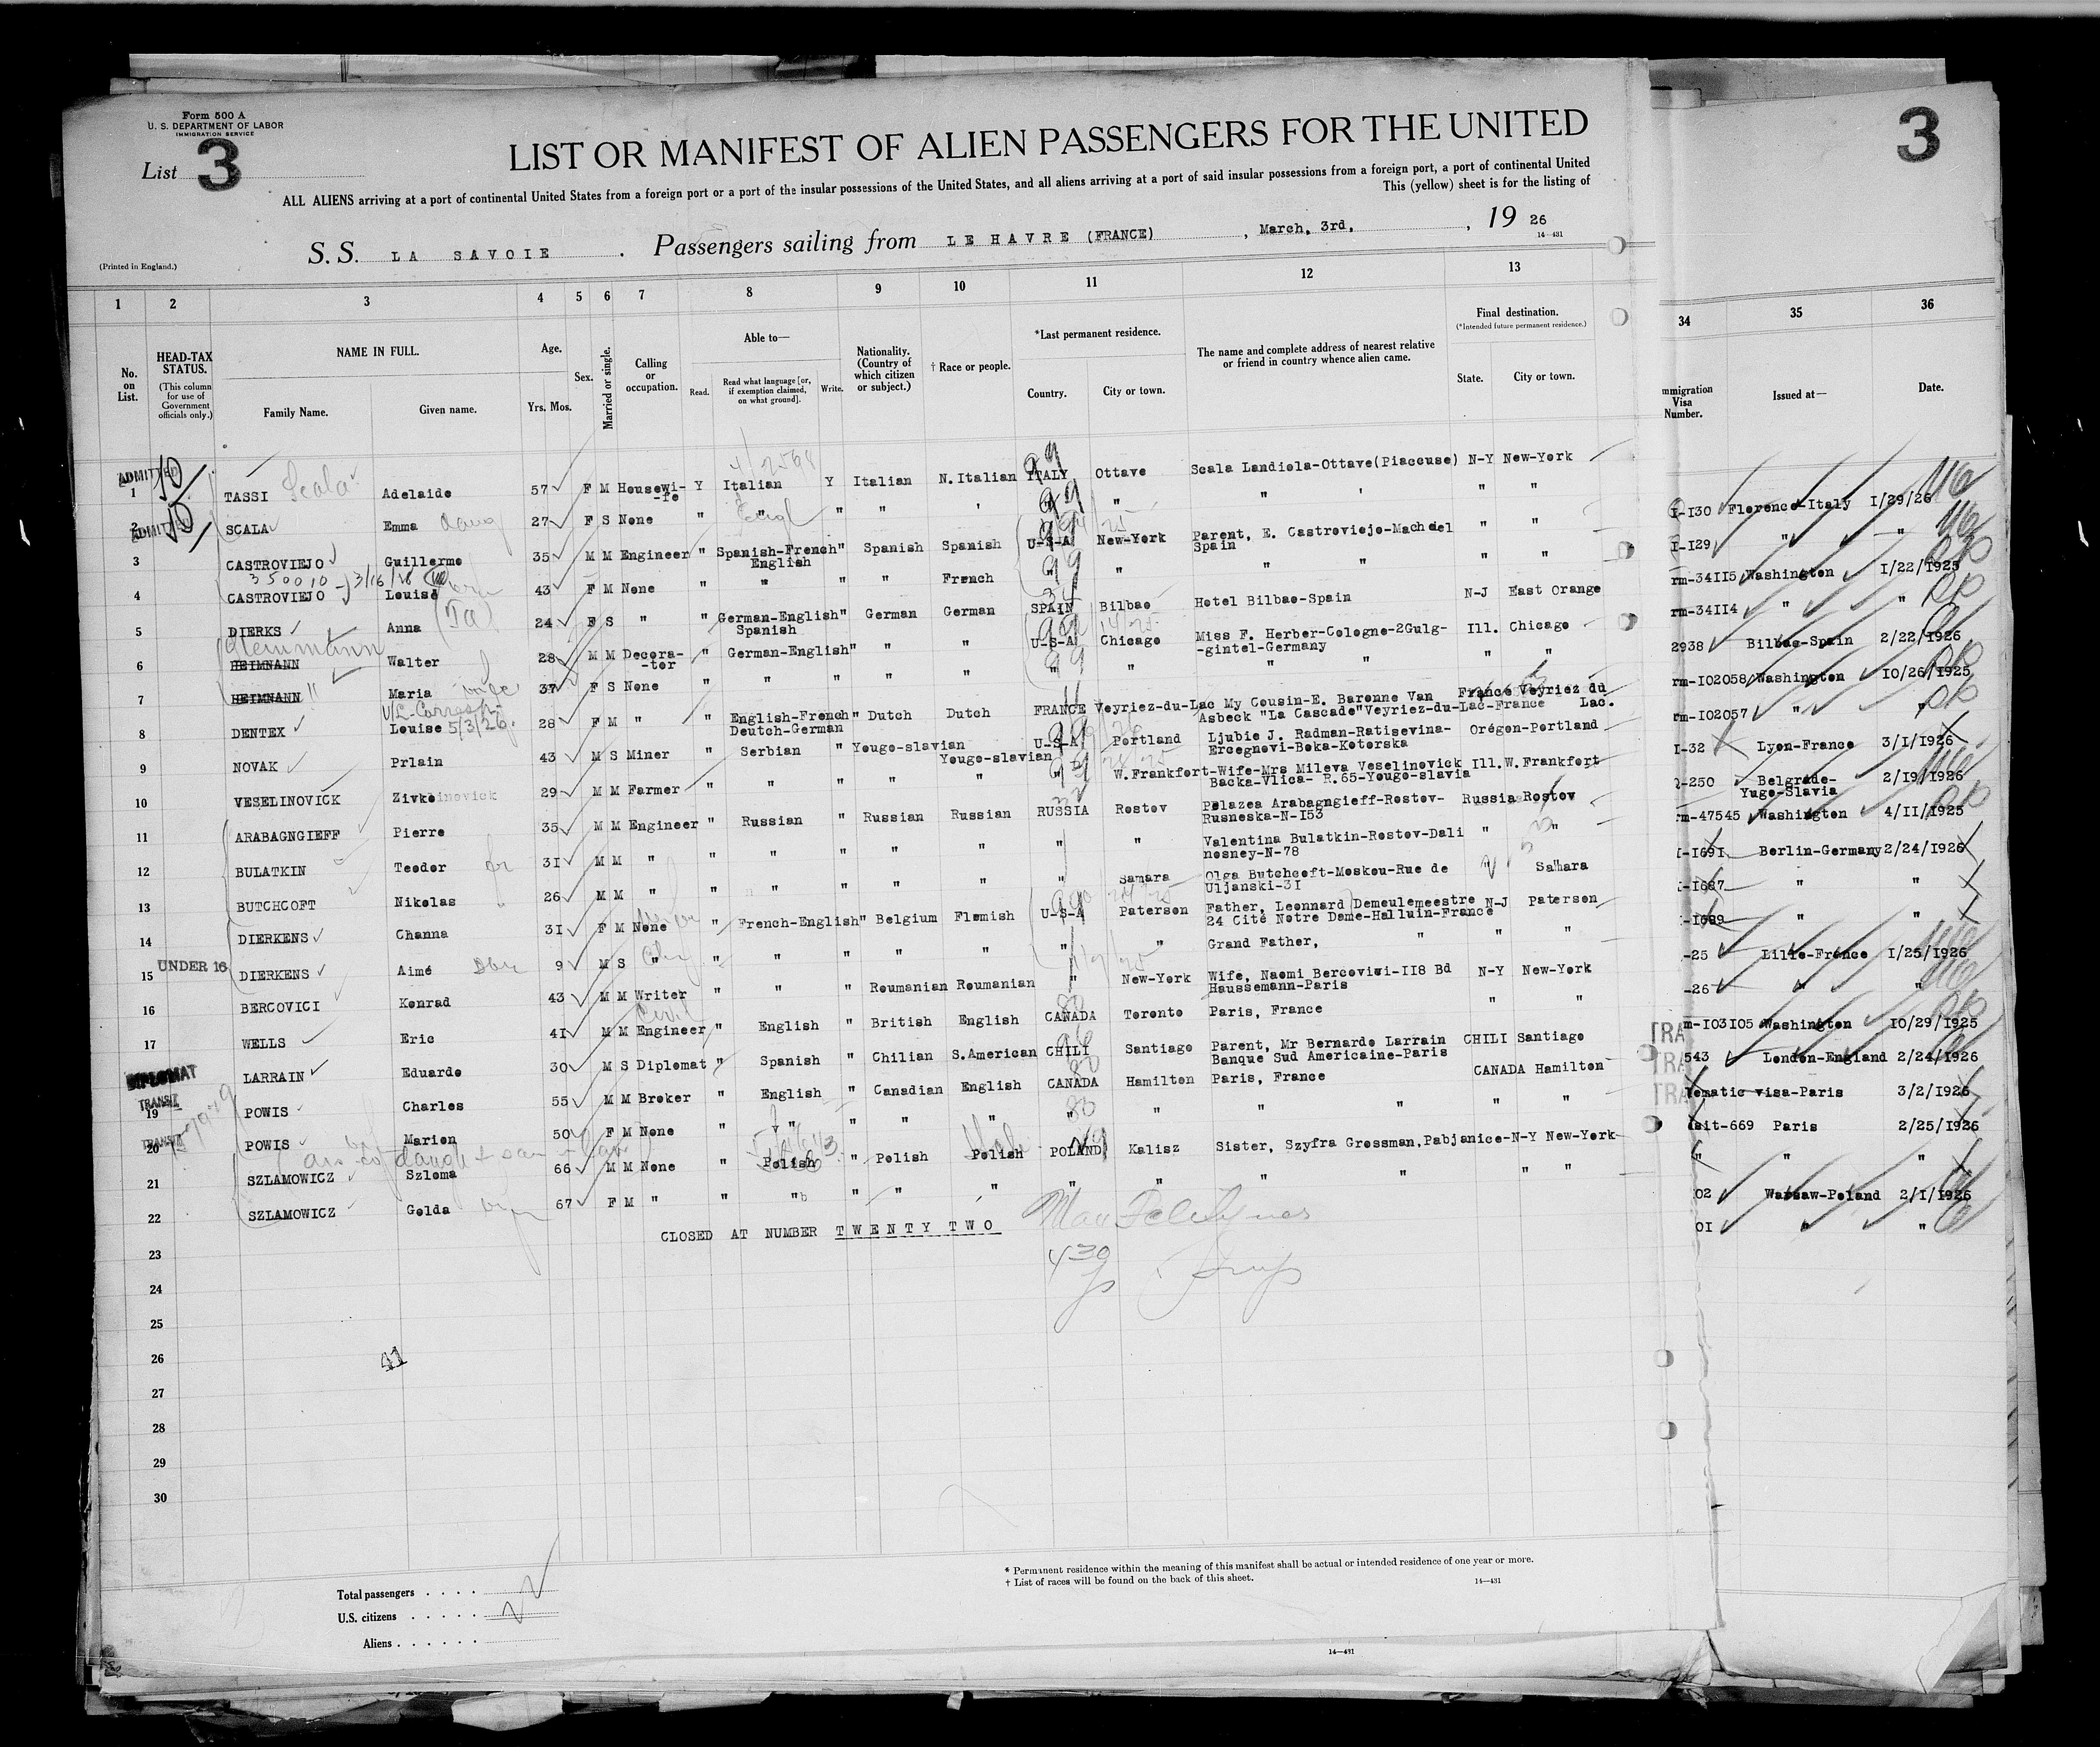 Form 500 A
U. S. DEPARTMENT OF LABOR
IMMIGRATION SERVICE
List 3
3
LIST OR MANIFEST OF ALIEN PASSENGERS FOR THE UNITED
ALL ALIENS arriving at a port of continental United States from a foreign port or a port of the insular possessions of the United States, and all aliens arriving at a port of said insular possessions from a foreign port, a port of continental United
This (yellow) sheet is for the listing of
S. S. LA SAVOIE . Passengers sailing from LE HAVRE (FRANCE) , March, 3rd, , 19 26
14—431
(Printed in England.)
1 2 3 4 5 6 7 8 9 10 11 12 13 34 35 36
No. on List.
HEAD-TAX STATUS.
(This column for use of Government officials only.)
NAME IN FULL.
Family Name. Given name.
Age.
Yrs. Mos.
Sex.
Married or single.
Calling or occupation.
Able to—
Read. Read what language [or, if exemption claimed, on what ground]. Write.
Nationality. (Country of which citizen or subject.)
† Race or people.
*Last permanent residence.
Country. City or town.
The name and complete address of nearest relative or friend in country whence alien came.
Final destination.
(*Intended future permanent residence.)
State. City or town.
mmigration Visa Number.
Issued at—
Date.
ADMITTED 10
1 TASSI Scala Adelaide 57 F M Housewi-fe Y Italian Y Italian N.Italian ITALY Ottave Scala Landiola-Ottave(Piaccuse) N-Y New-York I-I30 Florence-Italy I/29/26
ADMITTED 10
2 SCALA Emma daug 27 F S None " " " " ' " " " ' " " I-I29 " "
3 CASTROVIEJO Guillerme 35 M M Engineer " Spanish-French English " Spanish Spanish U-S-A New-York Parent, E. Castroviejo-Machdel Spain " " rm-34II5 Washington I/22/I925
350010 - 3/16/28
4 CASTROVIEJO Louise 43 F M None " " " " French " " " " " " rm-34II4 " "
5 DIERKS Anna 24 F S " " German-English Spanish " German German SPAIN Bilbao Hotel Bilbao-Spain N-J East Orange 2938 Bilbao-Spain 2/22/I926
Heinmann
6 HEIMNANN Walter 28 M M Decora-tor " German-English " " " U-S-A Chicago Miss F. Herber-Cologne-2Gulg-gintel-Germany Ill. Chicago rm-I02058 Washington IO/26/I925
7 HEIMNANN Maria 37 F S None " " " " " " " " " " " rm-I02057 " "
8 DENTEX Louise 5/3/26 28 F M " " English-French Deutch-German " Dutch Dutch FRANCE Veyriez-du-Lac My Cousin-E. Baronne Van Asbeck "La Cascade"Veyriez-du-Lac-France France Veyriez du Lac. I-32 Lyon-France 3/I/I926
9 NOVAK Prlain 43 M S Miner " Serbian " Yougo-slavian Yougo-slavian U-S-A Portland Ljubie J. Radman-Ratisevina-Ercegnovi-Boka-Kotorska Orégon-Portland -250 Belgrade-Yugo-Slavia 2/I9/I926
10 VESELINOVICK Zivko 29 M M Farmer " " " " " " W.Frankfort-Wife-Mrs Mileva Veselinovick Backa-Vlica- R.65-Yougo-slavia Ill.W.Frankfort m-47545 Washington 4/II/I925
11 ARABAGNGIEFF Pierre 35 M M Engineer " Russian " Russian Russian RUSSIA Rostov Pelazea Arabagngieff-Rostov-Rusneska-N-I53 Russia Rostov -I69I Berlin-Germany 2/24/I926
12 BULATKIN Teodor 3I M M " " " " " " " " Valentina Bulatkin-Rostov-Dalinosney-N-78 " " -I687 " "
13 BUTCHCOFT Nikolas 26 M M " " " " " " " Samara Olga Butchcoft-Moskou-Rue de Uljanski-3I " Samara -I689 " "
14 DIERKENS Channa 3I F M None " French-English " Belgium Flemish U-S-A Paterson Father, Leonnard Demeulemeestre 24 Cité Notre Dame-Halluin-France N-J Paterson -25 Lille-France I/25/I926
UNDER 16
15 DIERKENS Aimé 9 M S " " " " " " " " Grand Father, " " " -26 " "
16 BERCOVICI Konrad 43 M M Writer " " " Roumanian Roumanian " New-York Wife, Naomi Bercovici-II8 Bd Haussemann-Paris N-Y New-York m-I03I05 Washington IO/29/I925
17 WELLS Eric 4I M M Civil Engineer " English " British English CANADA Toronto Paris, France " " 543 London-England 2/24/I926
DIPLOMAT
LARRAIN Eduardo 30 M S Diplomat " Spanish " Chilian S.American CHILI Santiago Parent, Mr Bernardo Larrain Banque Sud Americaine-Paris CHILI Santiago ematic visa-Paris 3/2/I926
TRANSIT
19 POWIS Charles 55 M M Broker " English " Canadian English CANADA Hamilton Paris, France CANADA Hamilton sit-669 Paris 2/25/I926
TRANSIT
20 POWIS Marion 50 F M None " " " " " " " " " " " " " "
21 SZLAMOWICZ Szloma 66 M M None " Polish " Polish Polish POLAND Kalisz Sister, Szyfra Grossman,Pabjanice-N-Y New-York 02 Warsaw-Poland 2/I/I926
22 SZLAMOWICZ Golda 67 F M " " " " " " " " " " " " 0I " "
CLOSED AT NUMBER TWENTY TWO
TRA
TRA
TRA
23
24
25
26
27
28
29
30
41
430
Total passengers . . . .
U.S. citizens . . . . .
Aliens . . . . . .
* Permanent residence within the meaning of this manifest shall be actual or intended residence of one year or more.
† List of races will be found on the back of this sheet.
14—431
14—431